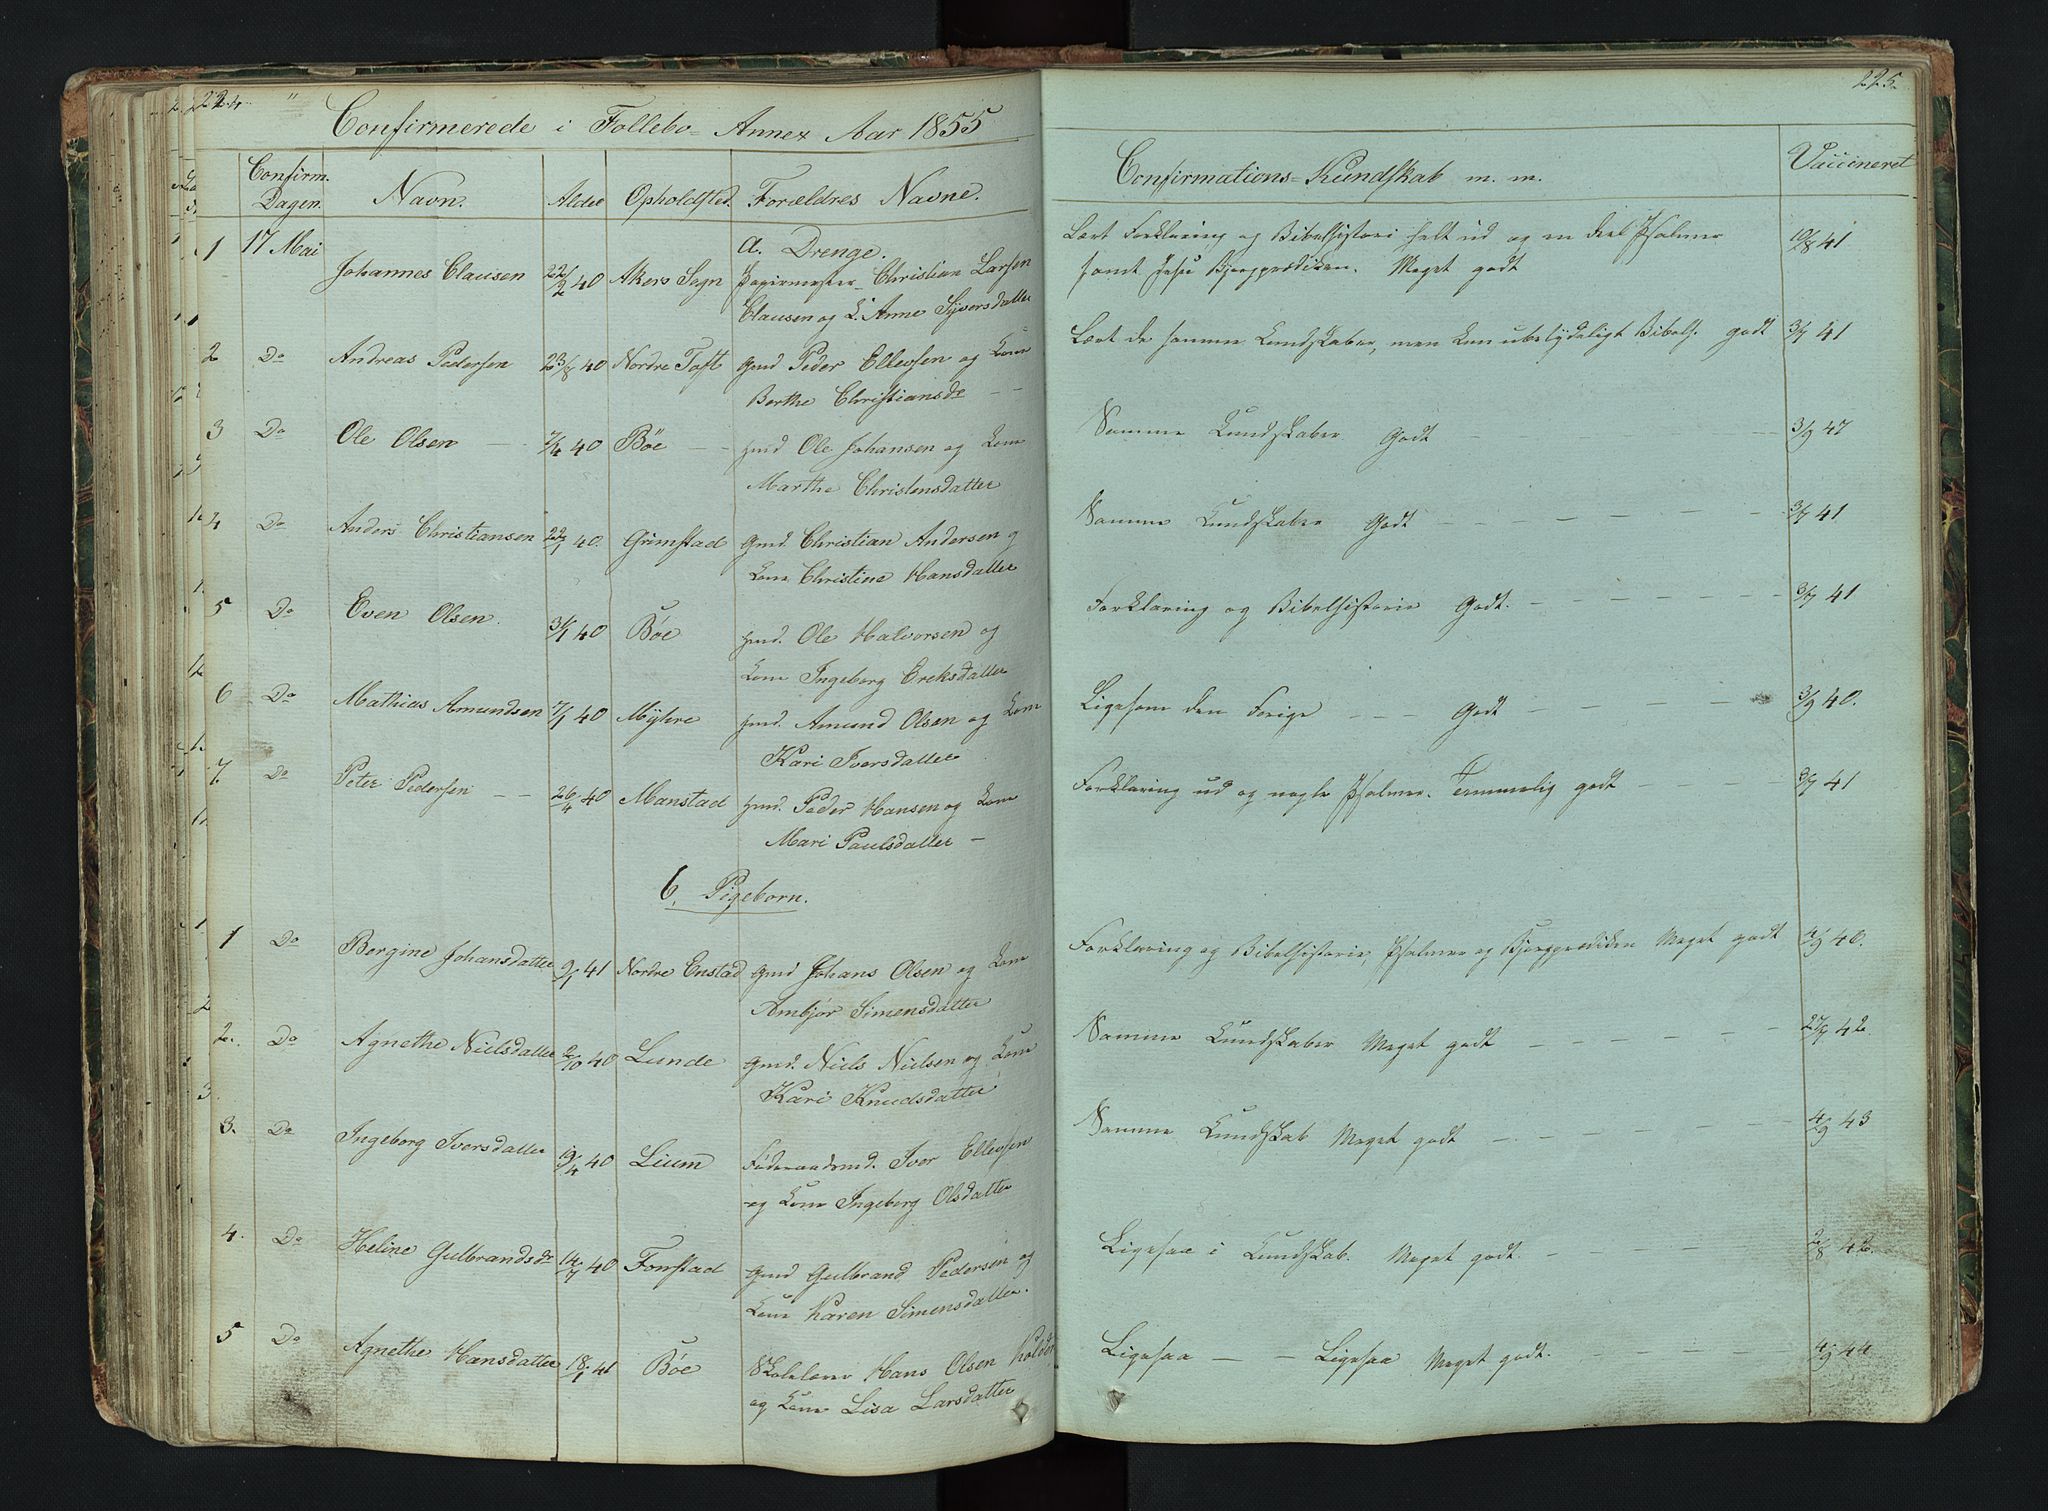 224.
Confirmerede i Follebo- Annex Aar 1855
Confirm. Dagen. Navn. Alder Opholdsted. Forældres Navne.
a. Drenge.
1 17 Mai Johannes Clausen 22/2 40 Akers Sogn Papirmester Christian Larsen
Clausen og K. Anne Syversdatter
2 Do Andreas Pedersen 23/8 40 Nordre Toft Gmd Peder Ellevsen og Kone
Berthe Christiansdr
3 Do Ole Olsen 7/4 40 Böe Hmd Ole Johansen og Kone
Marthe Christensdatter
4 Do Anders Christiansen 22/1 40. Grimstad Gmd. Christian Andersen og
Kone Christine Hansdatter
5 Do Even Olsen. 31/1 40 Bøe Hmd. Ole Halvorsen og
Kone Ingeborg Ereksdatter
6 Do Mathias Amundsen 7/1 40 Myhre Hmd. Amund Olsen og Kone
Kari Iversdatter
7. Do Peter Pedersen 26/4 40 Manstad Hmd. Peder Hansen og Kone
Mari Paulsdatter
b. Pigeborn.
1 Do Bergine Johansdatter 9/1 41 Nordre Enstad Gmd Johans Olsen og Kone
Ambjør Simensdatter
2. Do Agnethe Nielsdatter 2/10 40 Lunde Gmd. Niels Nielsen og Kone
Kari Knudsdatter
3. Do Ingeborg Iversdatter 19/4 40 Lium Føderaadsmd. Iver Ellevsen
og Kone Ingeborg Olsdatter
4. Do Heline Gulbrandsdr 14/7 40 Fonstad Gmd Gulbrand Pedersen og
Kone Karen Simensdatter.
5 Do Agnethe Hansdatter 18/1 41 Bøe Skolelærer Hans Olsen
og Kone Lisa Larsdatter
225.
Confirmations-Kundskab m. m. Vaccineret
Lært Forklaring og Bibelhistori helt ud og en deel Psalmer 10/8 41
samt Jesu Bjergprædiken. Meget godt
Lært de samme Kundskaber, men kun ubetydeligt Bibelh. godt 3/7 41
Samme Kundskaber Godt 3/9 47
Samme Kundskaber Godt 3/7 41
Forklaring og Bibelhistorie Godt. 3/7 41
Ligesom den Forige Godt 3/9 40.
Forklaring ud og nogle Psalmer. Temmelig godt 3/7 41
Forklaring og Bibelhistorie, Psalmer og Bjergprædiken Meget godt 4/9 40.
Samme Kundskaber Meget godt 27/9 42.
Samme Kundskab Meget godt 4/9 43
Ligesaa i Kundskab. Meget godt. 2/8 42.
Ligesaa Ligesaa Meget godt. 4/9 44